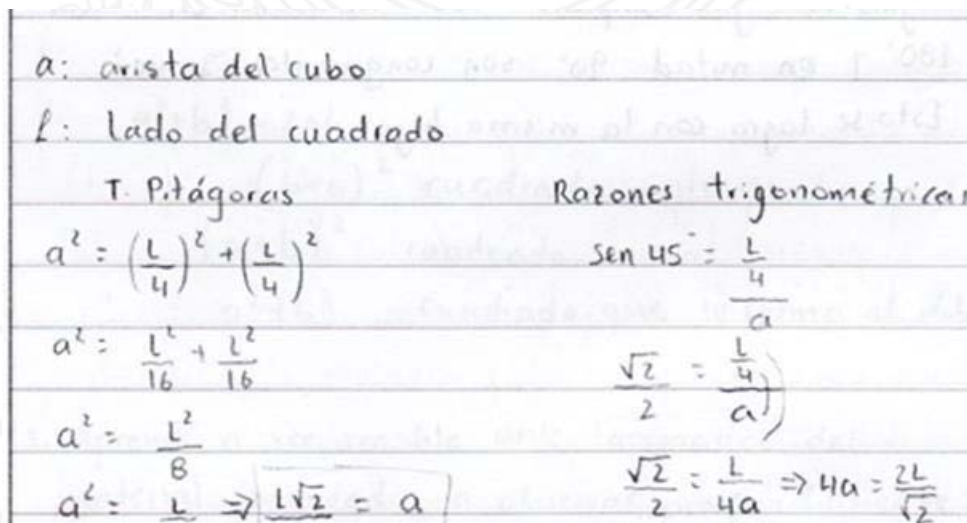 a: arista del cubo
L: lado del cuadrado
T. Pitágoras
a² = (L/4)² + (L/4)²
a² = L²/16 + L²/16
a² = L²/8
a² = L ⇒ √2 = a
Razones trigonométricas
sen 45 = L/4 / a
√2/2 = L/4 / a)
√2/2 = L/4a ⇒ 4a = 2L/√2